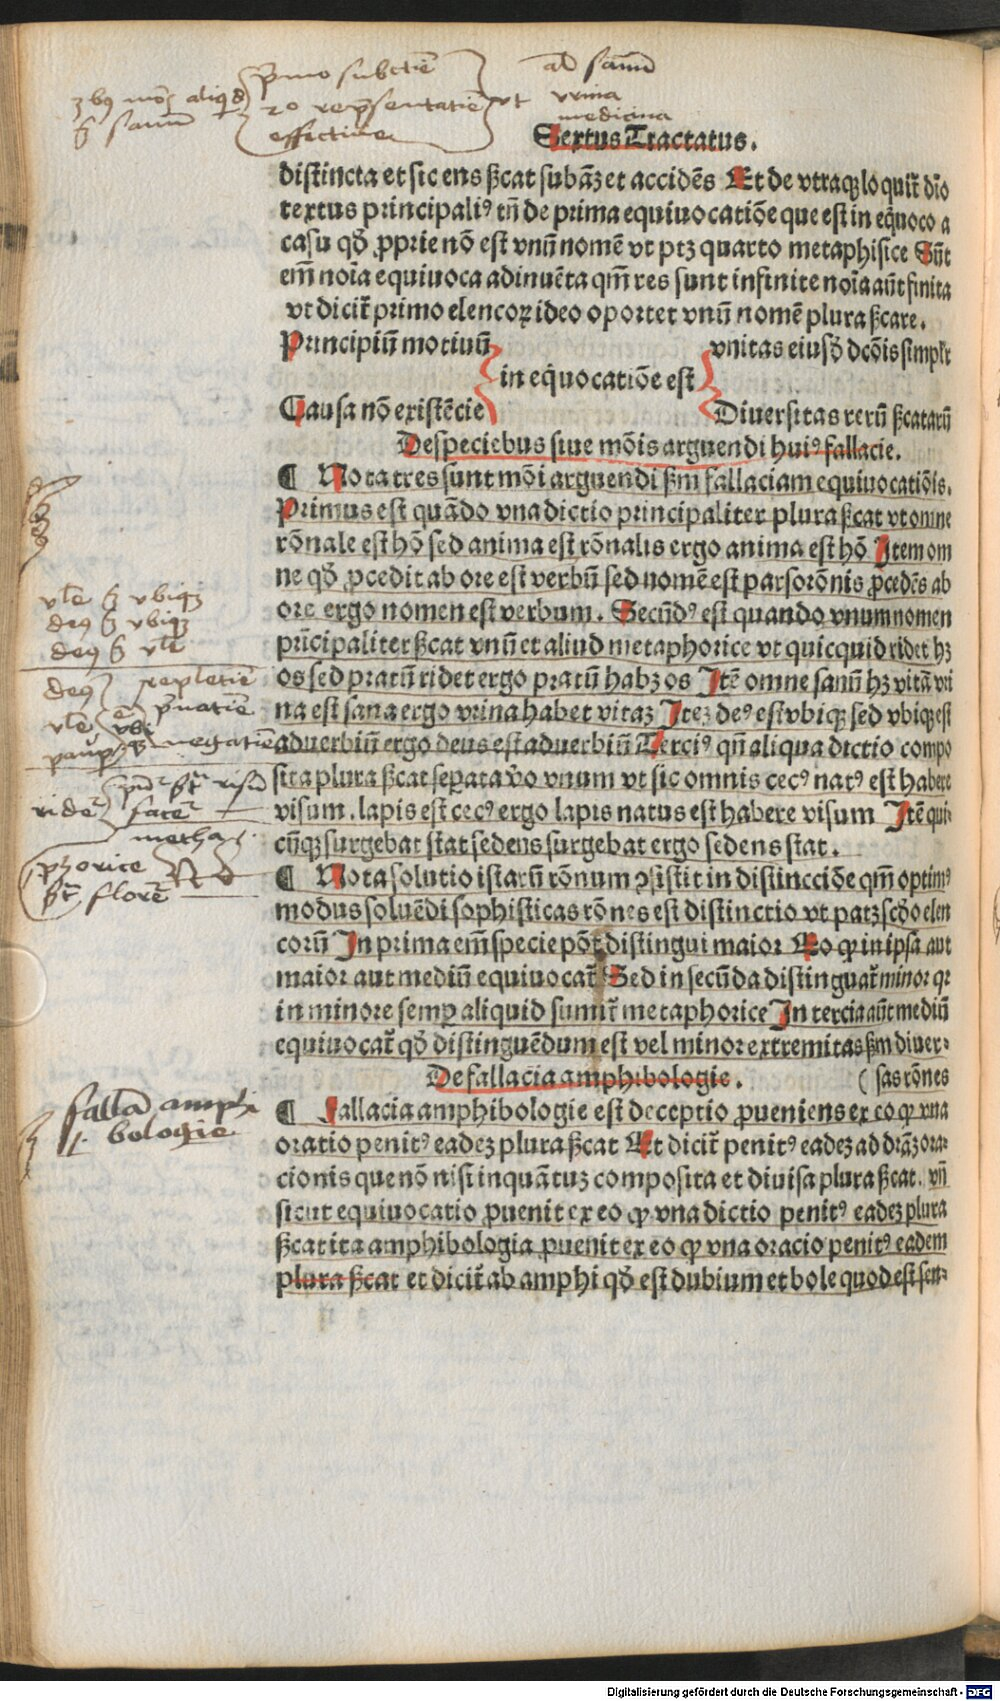 pͥmo subctīe
ad sanū
3bꝰ mōꝫ aliqd
2o rep̄sentatīe ut
vrina
ē sanū
effectiue
medicina
Sextus Tractatus.
distincta et sic ens ßcat subāꝫ et accidēs Et de vtraqꝫ loquit̄ dīo
textus principaliꝰ tn̄ de prima equiuocatiōe que est in eq̄uoco a
casu qð ꝓprie nō est vnū nomē vt ptꝫ quarto metaphisice Sūt
em̄ noīa equiuoca adinuēta qm̄ res sunt infinite noīa aūt finita
vt dicit̄ primo elencoꝝ ideo oportet vnū nomē plura ßcare.
Principiū motiuū
vnitas eiusð dcōis simplr
in eq̄uocatiōe est
Causa nō existēcie
Diuersitas rerū ßcatarū
De speciebus siue mōis arguendi huiꝰ fallacie.
¶ Nota tres sunt mōi arguendi ßm fallaciam equiuocatiōis.
Primus est quādo vna dictio principaliter plura ßcat vt omne
rōnale est hō sed anima est rōnalis ergo anima est hō Item om
ne qð ꝓcedit ab ore est verbū sed nomē est pars orōnis ꝓcedēs ab
ore ergo nomen est verbum. Secūdꝰ est quando vnum nomen
pricipaliter ßcat vnū et aliud metaphorice vt quicquid ridet hꝫ
os sed pratū ridet ergo pratū habꝫ os Itē omne sanū hꝫ vitā vri
na est sana ergo vrina habet vitaꝫ Iteꝫ deꝰ est vbiqꝫ sed vbiqꝫ est
aduerbiū ergo deus est aduerbiū Terciꝰ qn̄ aliqua dictio compo
sita plura ßcat seꝑata v̄o vnum vt sic omnis cecꝰ natꝰ est habere
visum. lapis est cecꝰ ergo lapis natus est habere visum Itē qui-
cūqꝫ surgebat stat sedens surgebat ergo sedens stat.
¶ Nota solutio istarū rōnum ꝯsistit in distinccōe qm̄ optimꝰ
modus soluēdi sophisticas rōnes est distinctio vt patꝫ scðo elen
corū In prima em̄ specie pōt distingui maior Eo ꝙ in ipsa aut
maior aut mediū equiuocat̄ Sed in secūda distinguat̄ minor qr
in minore semꝑ aliquid sumit̄ metaphorice In tercia aūt mediū
equiuocat̄ qð distinguēdum est vel minor extremitas ßm diuer-
De fallacia amphibologie.
( sas rōnes
¶ Fallacia amphibologie est deceptio ꝓueniens ex eo ꝙ vna
oratio penitꝰ eadeꝫ plura ßcat Et dicit̄ penitꝰ eadeꝫ ad dr̄āꝫ ora-
cionis que nō nisi inquātuꝫ composita et diuisa plura ßcat. vn̄
sicut equiuocatio ꝓuenit ex eo ꝙ vna dictio penitꝰ eadeꝫ plura
ßcat ita amphibologia ꝓuenit ex eo ꝙ vna oracio penitꝰ eadem
plura ßcat et dicit̄ ab amphi qð est dubium et bole quod est sen-
vlē ē vbiqꝫ
deꝰ ē vbiqꝫ
deꝰ ē vlē
deꝰ repletīe
vlē ē vbi pͥuatīe
negatīe
rideꝛ
metha
phorice
florē
fallā amphi
bologie
Digitalisierung gefördert durch die Deutsche Forschungsgemeinschaft - DFG